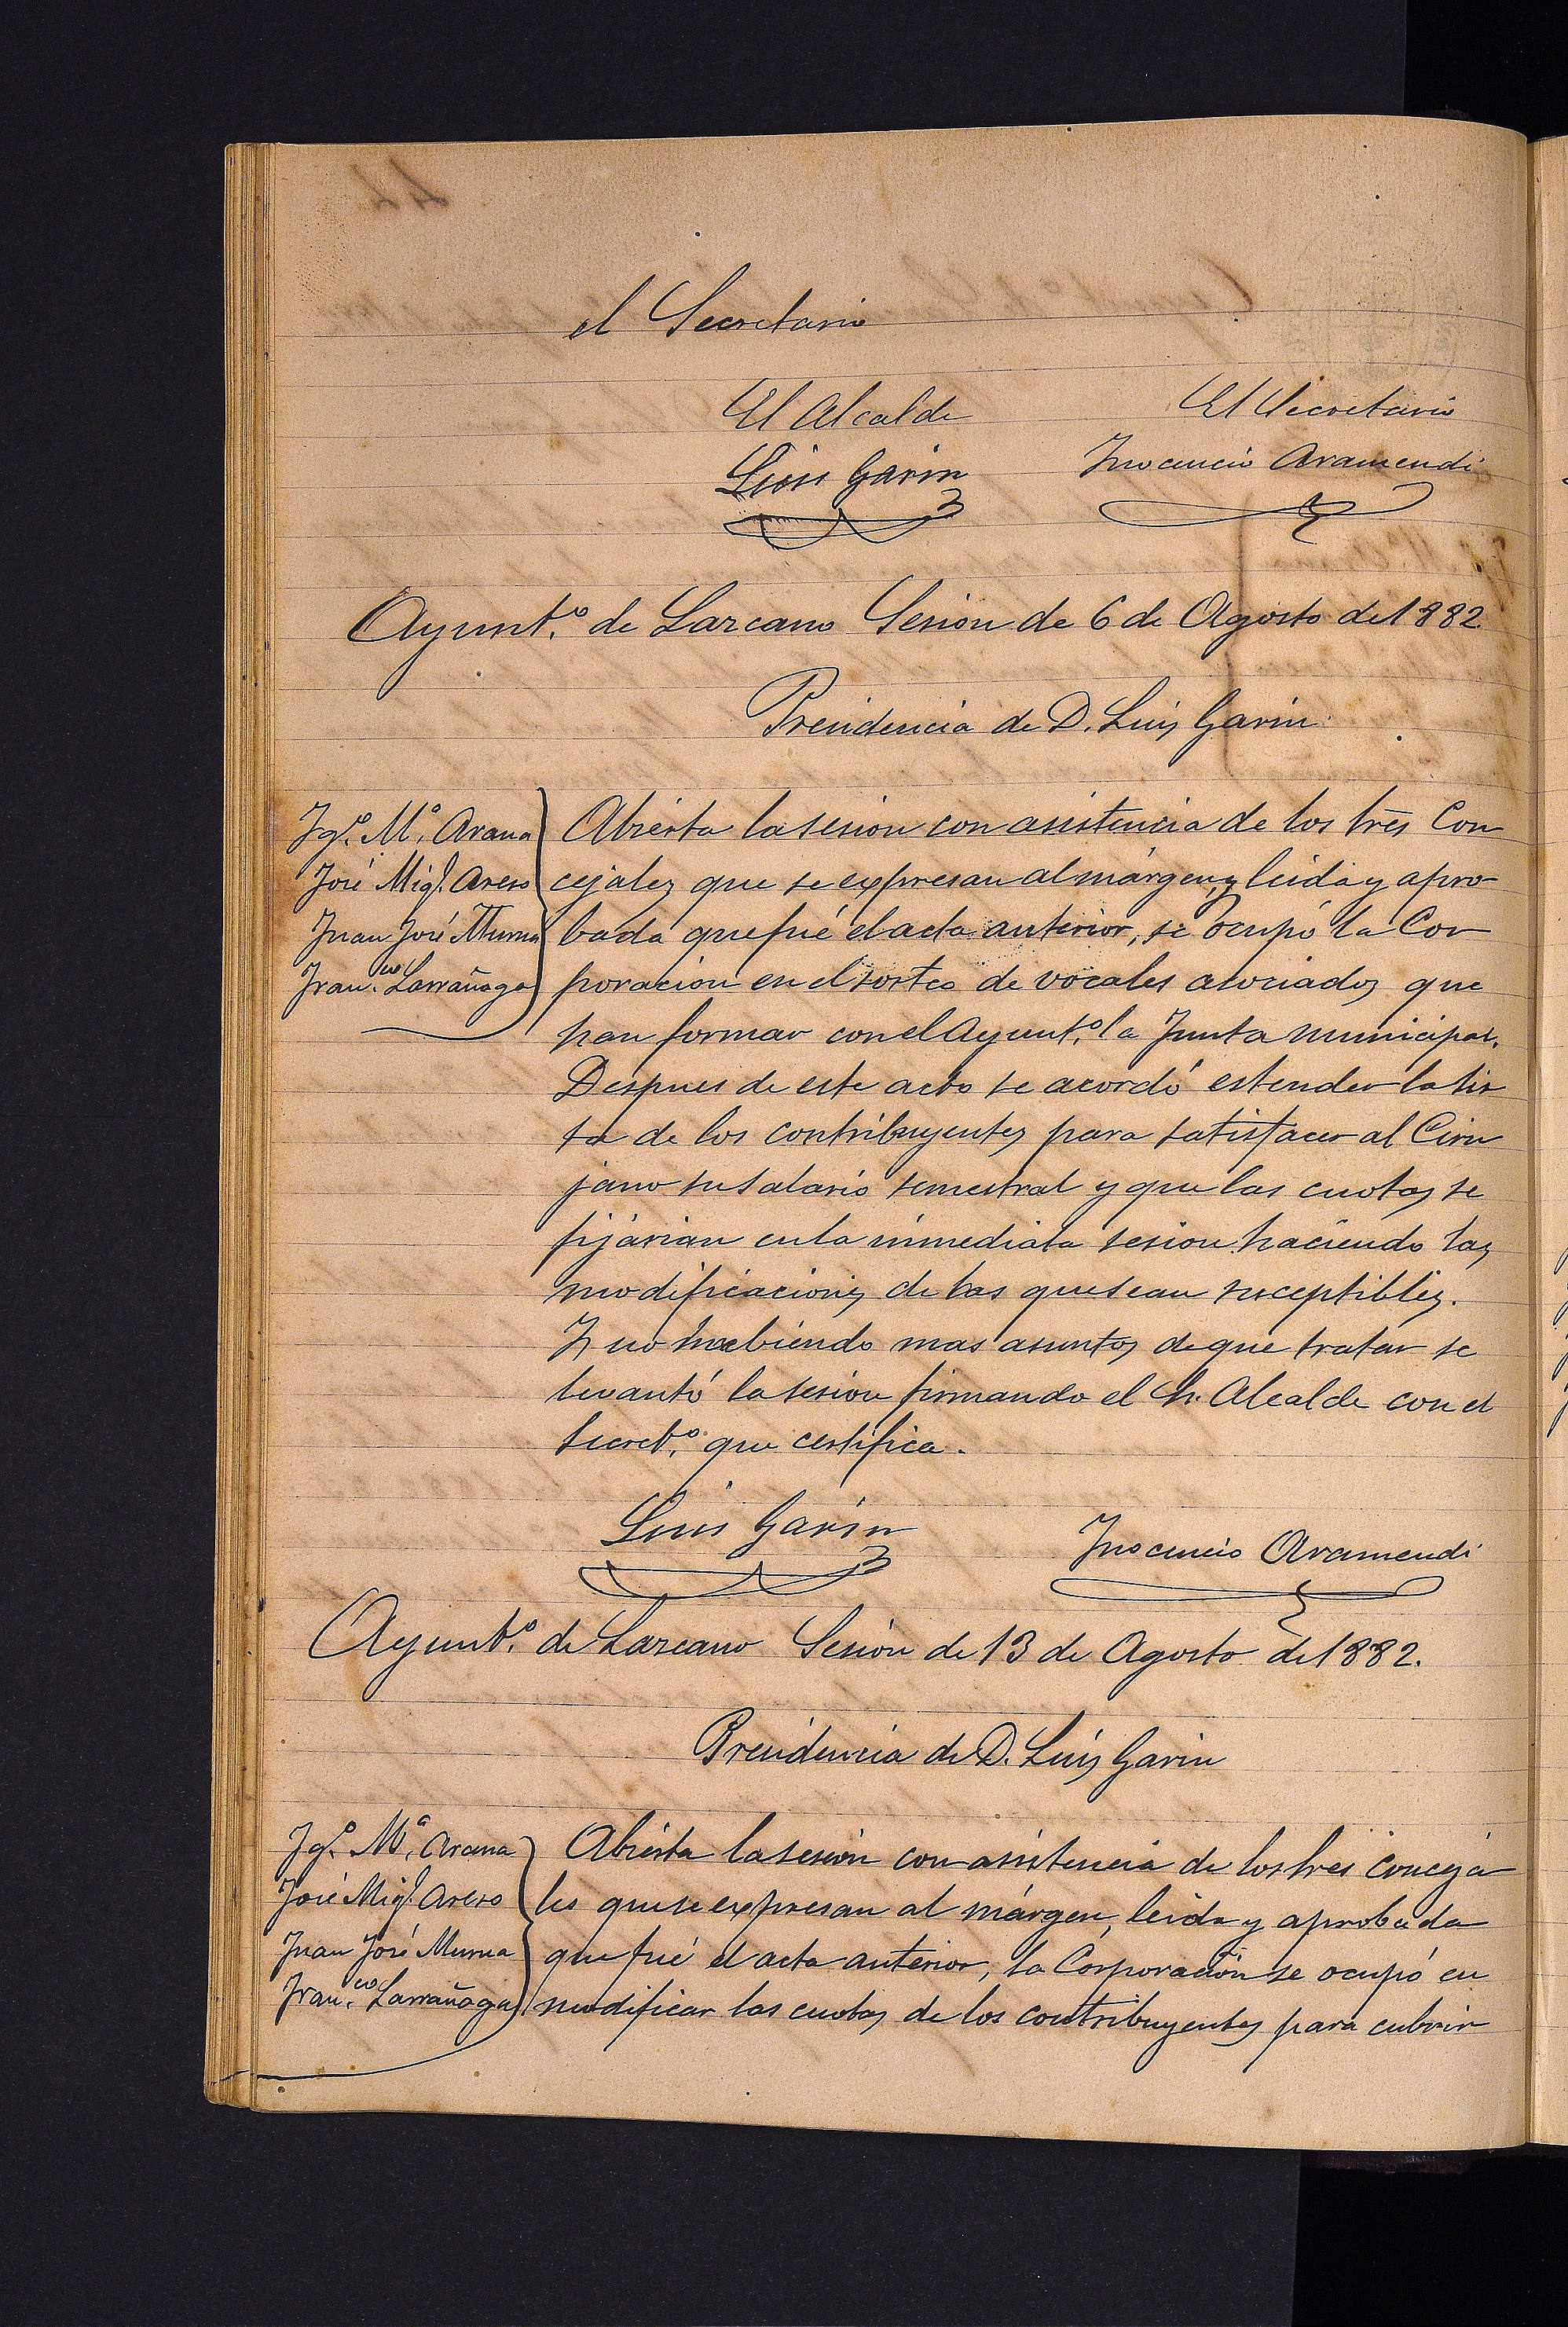 el Secretario
El Alcalde
Luis Garin
El Secretario
Inocencio Aramendi
Ayunt.º de Lazcano Sesion de 6 de Agosto de 1882.
Presidencia de D. Luis Garin
Ig.º M.ª Arana
José Mig.l Areso
Juan José Murua
Fran.co Larrañaga
Abierta la sesion con asistencia de los tres Con
cejales que se expresan al márgen, y leida y apro-
bada que fué el acta anterior, se ocupó la Cor
poracion en el sorteo de vocales asociados que
han formar con el Ayunt.º la Junta municipal.
Despues de este acto se acordó estender la lis
ta de los contribuyentes para satisfacer al Ciru
jano su salario semestral y que las cuotas se
fijárian en la inmediata sesion haciendo las
modificaciones de las que sean suceptibles.
Y no habiendo mas asuntos de que tratar se
levantó la sesion firmando el Sr. Alcalde con el
Secret.º que certifica.
Luis Garin
Inocencio Aramendi
Ayunt.º de Lazcano Sesion de 13 de Agosto de 1882.
Presidencia de D. Luis Garin
Ig.º M.ª Arana
José Mig.l Areso
Juan José Murua
Fran.co Larrañaga
Abierta la sesion con asistencia de los tres conceja
les que se expresan al márgen, leida y aprobada
que fué el acta anterior, la Corporacion se ocupó en
modificar las cuotas de los contribuyentes para cubrir